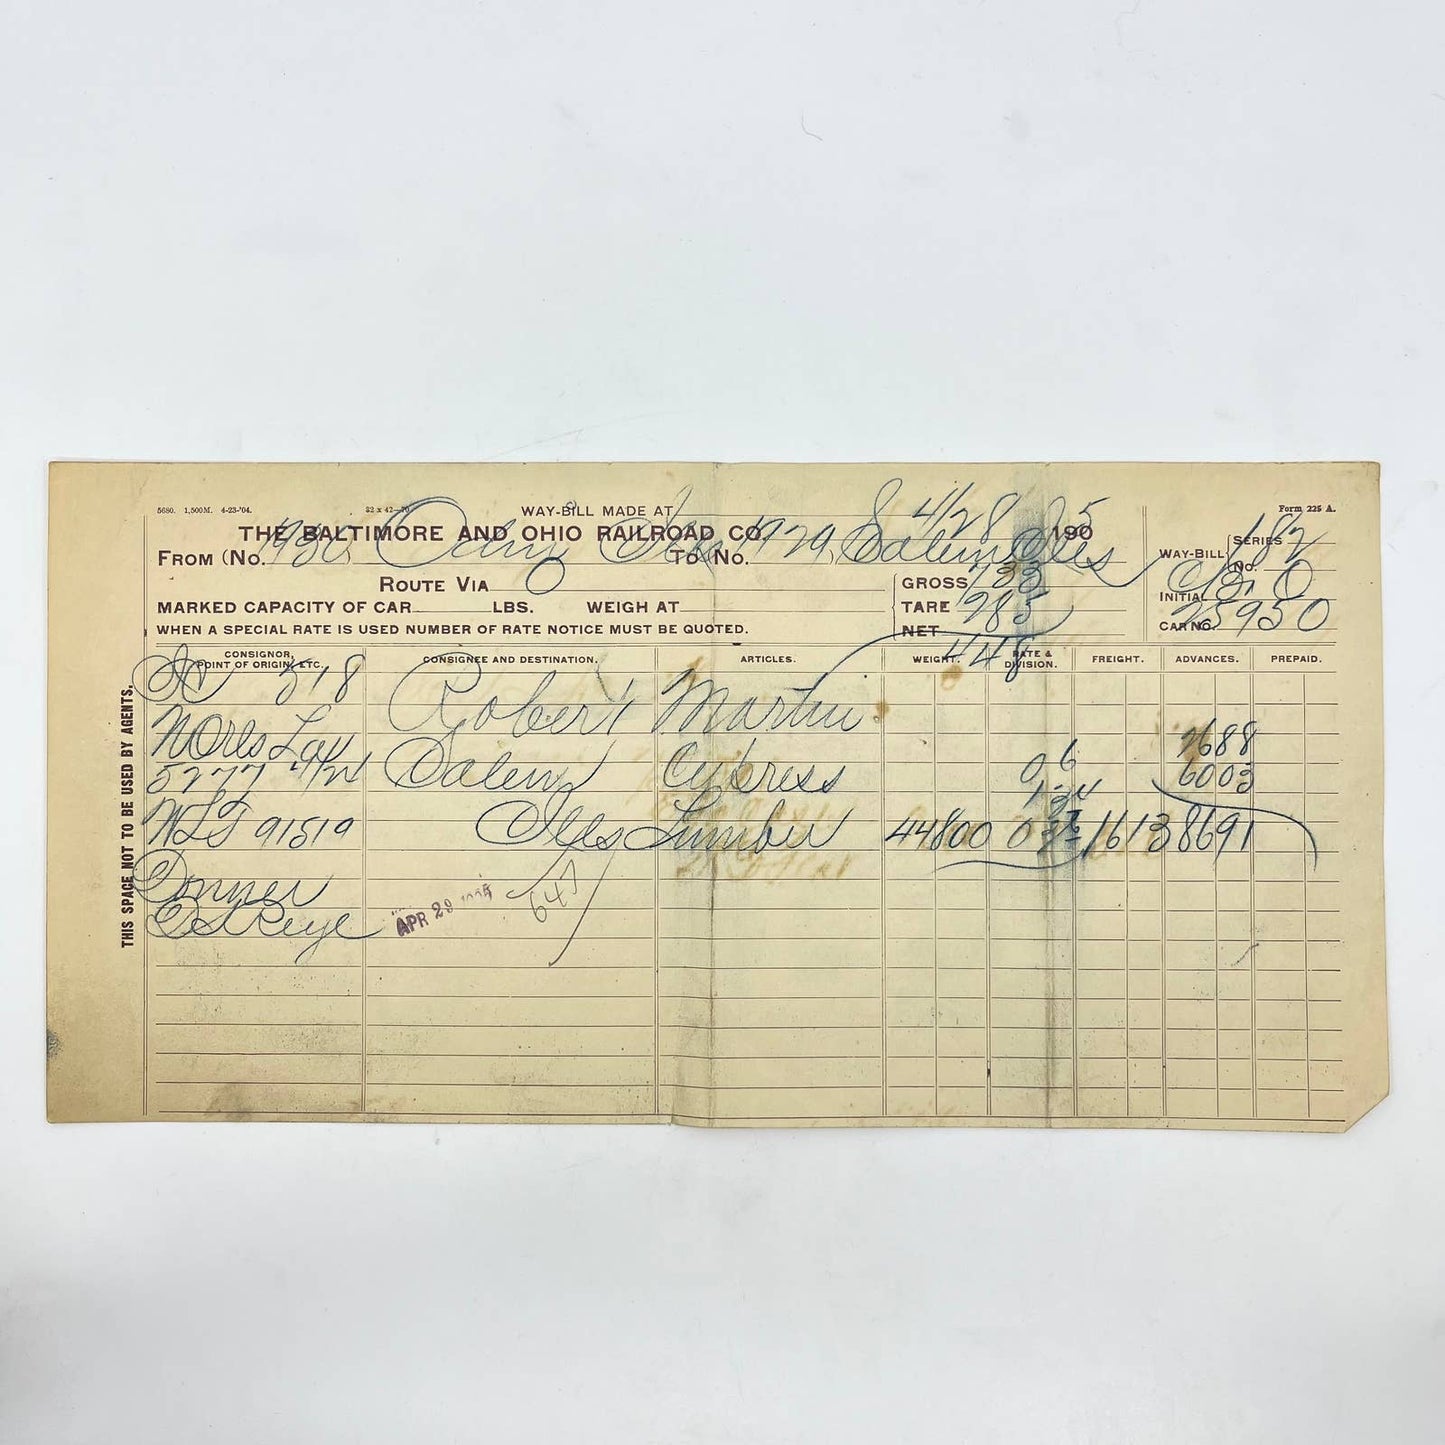 5680. 1,500M. 4-23-'04.
WAY-BILL MADE AT
4/28
Form 225 A.
THE BALTIMORE AND OHIO RAILROAD CO.
190 5
SERIES
182
FROM (NO. 1930 Odin Ills TO NO. 1929 Salem Ills
WAY-BILL
NO.
ROUTE VIA
GROSS 733
INITIAL B O
MARKED CAPACITY OF CAR LBS. WEIGH AT
TARE 285
CAR NO. 25950
WHEN A SPECIAL RATE IS USED NUMBER OF RATE NOTICE MUST BE QUOTED.
NET 448
CONSIGNOR, POINT OF ORIGIN, ETC.
CONSIGNEE AND DESTINATION.
ARTICLES.
WEIGHT.
RATE & DIVISION.
FREIGHT.
ADVANCES.
PREPAID.
518
Robert Martin
N Orls La
2688
5277 4/21
Salem Cypress
06
6003
91519
Ills Lumber 44800 1613 8691
Conner
APR 29
647
THIS SPACE NOT TO BE USED BY AGENTS.